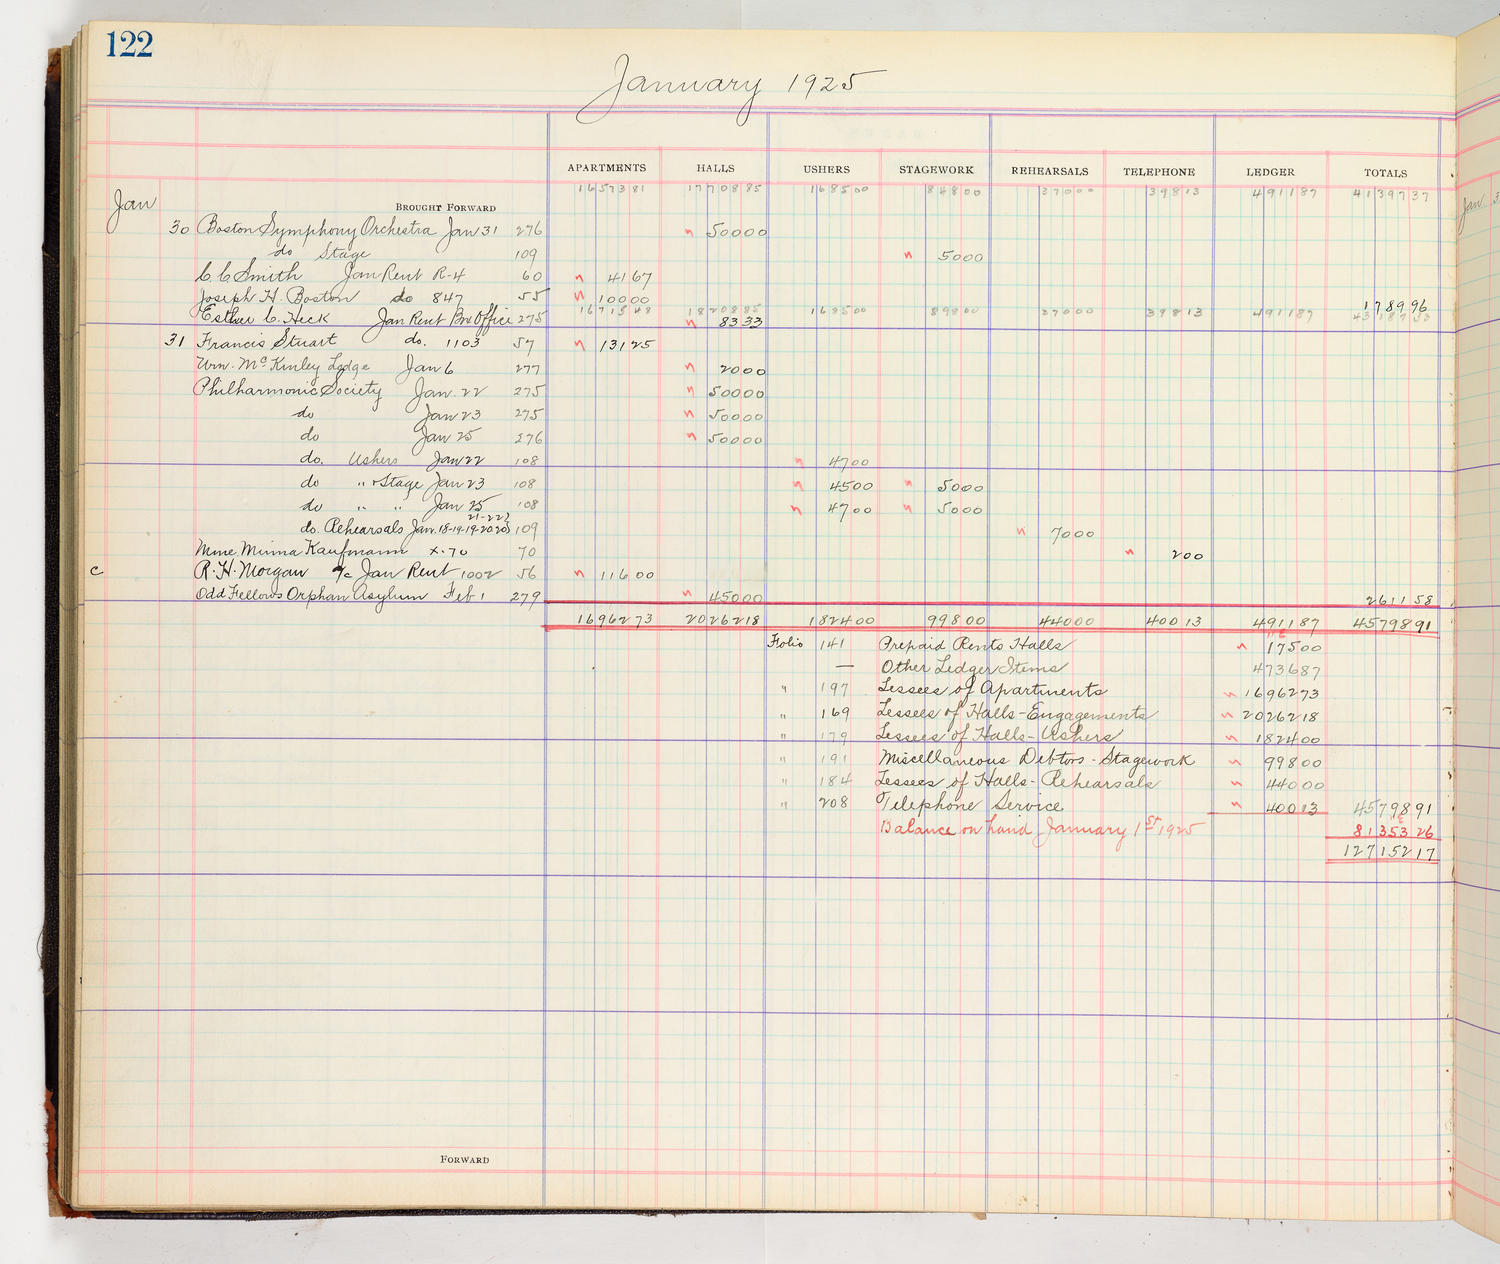 122
January 1925
APARTMENTS HALLS USHERS STAGEWORK REHEARSALS TELEPHONE LEDGER TOTALS
1657381 1770885 168500 84800 37000 39813 491187 4139737
Jan BROUGHT FORWARD
30 Boston Symphony Orchestra Jan 31 276 50000
do Stage 109 5000
C. C. Smith Jan Rent R-4 60 4167
Joseph H. Boston do 847 55 10000 178996
1671548 1820885 168500 89800 37000 39813 491187
Esther C. Heck Jan Rent Box Office 275 8333
31 Francis Stuart do. 1103 57 13125
Wm. McKinley Lodge Jan 6 277 2000
Philharmonic Society Jan. 22 275 50000
do Jan 23 275 50000
do Jan 25 276 50000
do. Ushers Jan 22 108 4700
do " + Stage Jan 23 108 4500 5000
do " " Jan 25 108 4700 5000
21-22
do. Rehearsals Jan. 18-19-19-20-20 109 7000
Mme Minna Kaufmann x. 70 70 200
c R. H. Morgan a/c Jan Rent 1002 56 11600
Odd Fellows Orphan Asylum Feb 1 279 45000 261158
1696273 2026218 182400 99800 44000 40013 491187 4579891
Folio 141 Prepaid Rents Halls 17500
— Other Ledger Items 473687
" 197 Lessees of Apartments 1696273
" 169 Lessees of Halls - Engagements 2026218
" 179 Lessees of Halls - Ushers 182400
" 191 Miscellaneous Debtors - Stagework 99800
" 184 Lessees of Halls - Rehearsals 44000
" 208 Telephone Service 40013 4579891
Balance on hand January 1st 1925 8135326
12715217
FORWARD
Jan 3